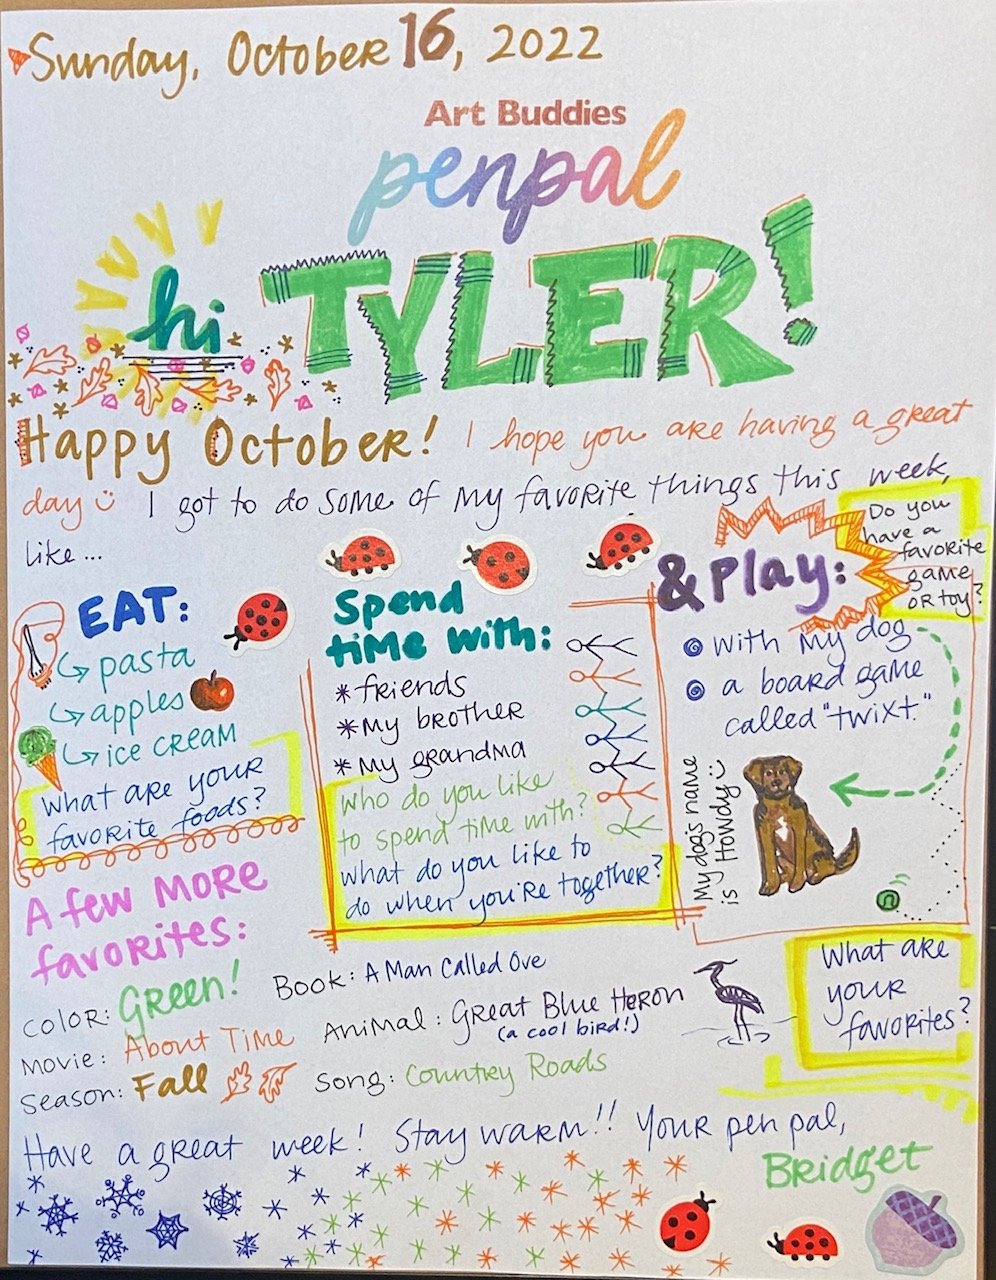 Sunday, October 16, 2022
Art Buddies
penpal
hi TYLER!
Happy October! I hope you are having a great
day I got to do some of my favorite things this week,
like...
EAT:
pasta
apples
ice cream
What are your
favorite foods?
Spend
time with:
* friends
* My brother
* My grandma
Who do you like
to spend time with?
What do you like to
do when you're together?
& Play:
Do you
have a
favorite
game
or toy?
with my dog
a board game
called "twixt."
My dog's name
is Howdy
A few more
favorites:
Color: Green!
Book: A Man Called Ove
Movie: About Time
Animal: Great Blue Heron
(a cool bird!)
Season: Fall
Song: Country Roads
What are
your
favorites?
Have a great week! Stay warm!! Your pen pal,
Bridget